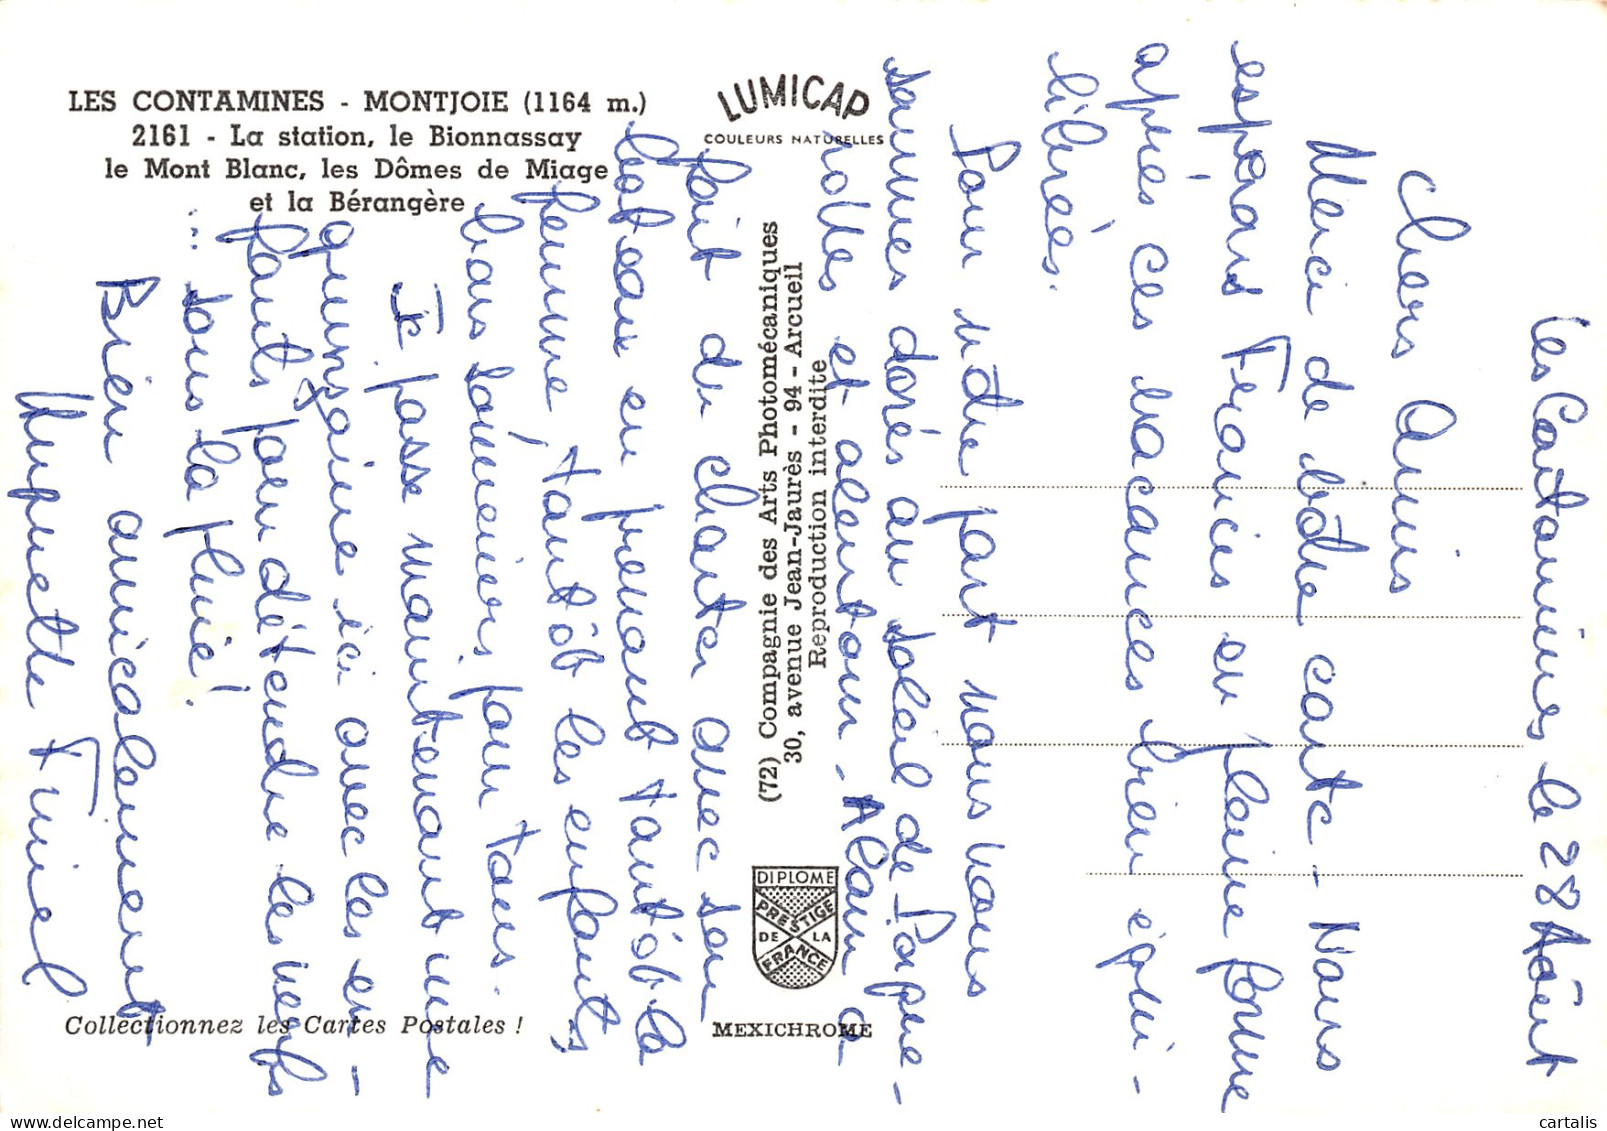 LES CONTAMINES - MONTJOIE (1164 m.)
2161 - La station, le Bionnassay
le Mont Blanc, les Dômes de Miage
et la Bérangère
LUMICAP
COULEURS NATURELLES
(72) Compagnie des Arts Photomécaniques
30, avenue Jean-Jaurès - 94 - Arcueil
Reproduction interdite
DIPLOME
PRESTIGE
DE LA
FRANCE
MEXICHROME
Collectionnez les Cartes Postales !
Les Contamines le 28 Août
Chers Amis
Merci de votre carte - Nous
espérons Francis en pleine forme
après ces vacances bien équi-
librées.
Pour notre part nous nous
sommes dorés au soleil de Porque-
rolles et alentour - Alain a
fait du charter avec son
bateau en prenant tantôt la
femme, tantôt les enfants,
bons souvenirs pour tous.
Je passe maintenant une
quinzaine ici avec les en-
fants pour détendre les nerfs
... sous la pluie !
Bien amicalement
Huguette
cartalis